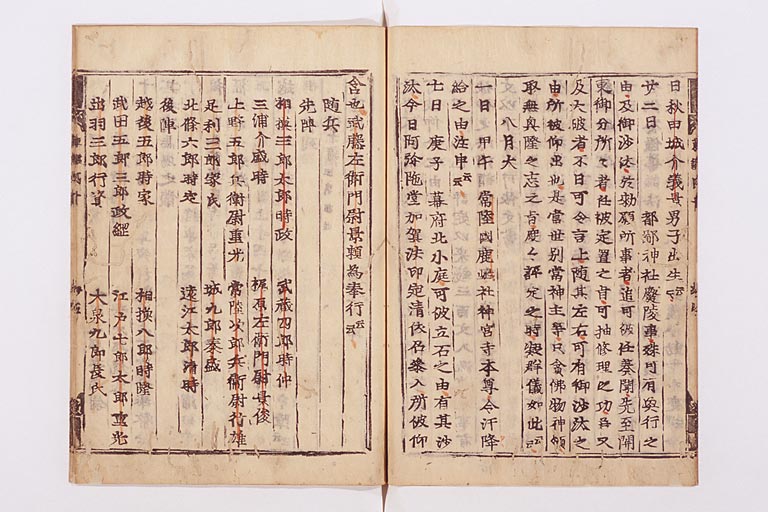 日秋田城介義景男子出生云云
廿二日 都鄙神社廃陵事殊可有興行之
由及御沙汰
東御分所之者社被定置之旨可抽修理之功若又
及大破者不日可令言上随其左右可有御沙汰之
由所被仰出也是當世別當神主等只貪佛物神領
取無興隆之志之旨度々評定之時
八月大
一日 甲午 常陸國鹿嶋社神宮寺本尊令汗降
給之由注申云云
七日 庚子 幕府北小庭可被立石之由有其沙
汰今日阿弥陁堂加賀法印定清依召参入所被仰
含也武藤左衛門尉景頼為奉行云云
随兵
先陣
相摸三郎太郎時政 武蔵四郎時仲
三浦介盛時 梶原左衛門尉景俊
上野五郎兵衛尉重光 常陸次郎兵衛尉行雄
足利三郎家氏 城九郎泰盛
北條六郎時定 遠江太郎清時
後陣
越後五郎時家 相摸八郎時隆
武田五郎三郎政綱 江戸七郎太郎重光
出羽三郎行資 大泉九郎長氏